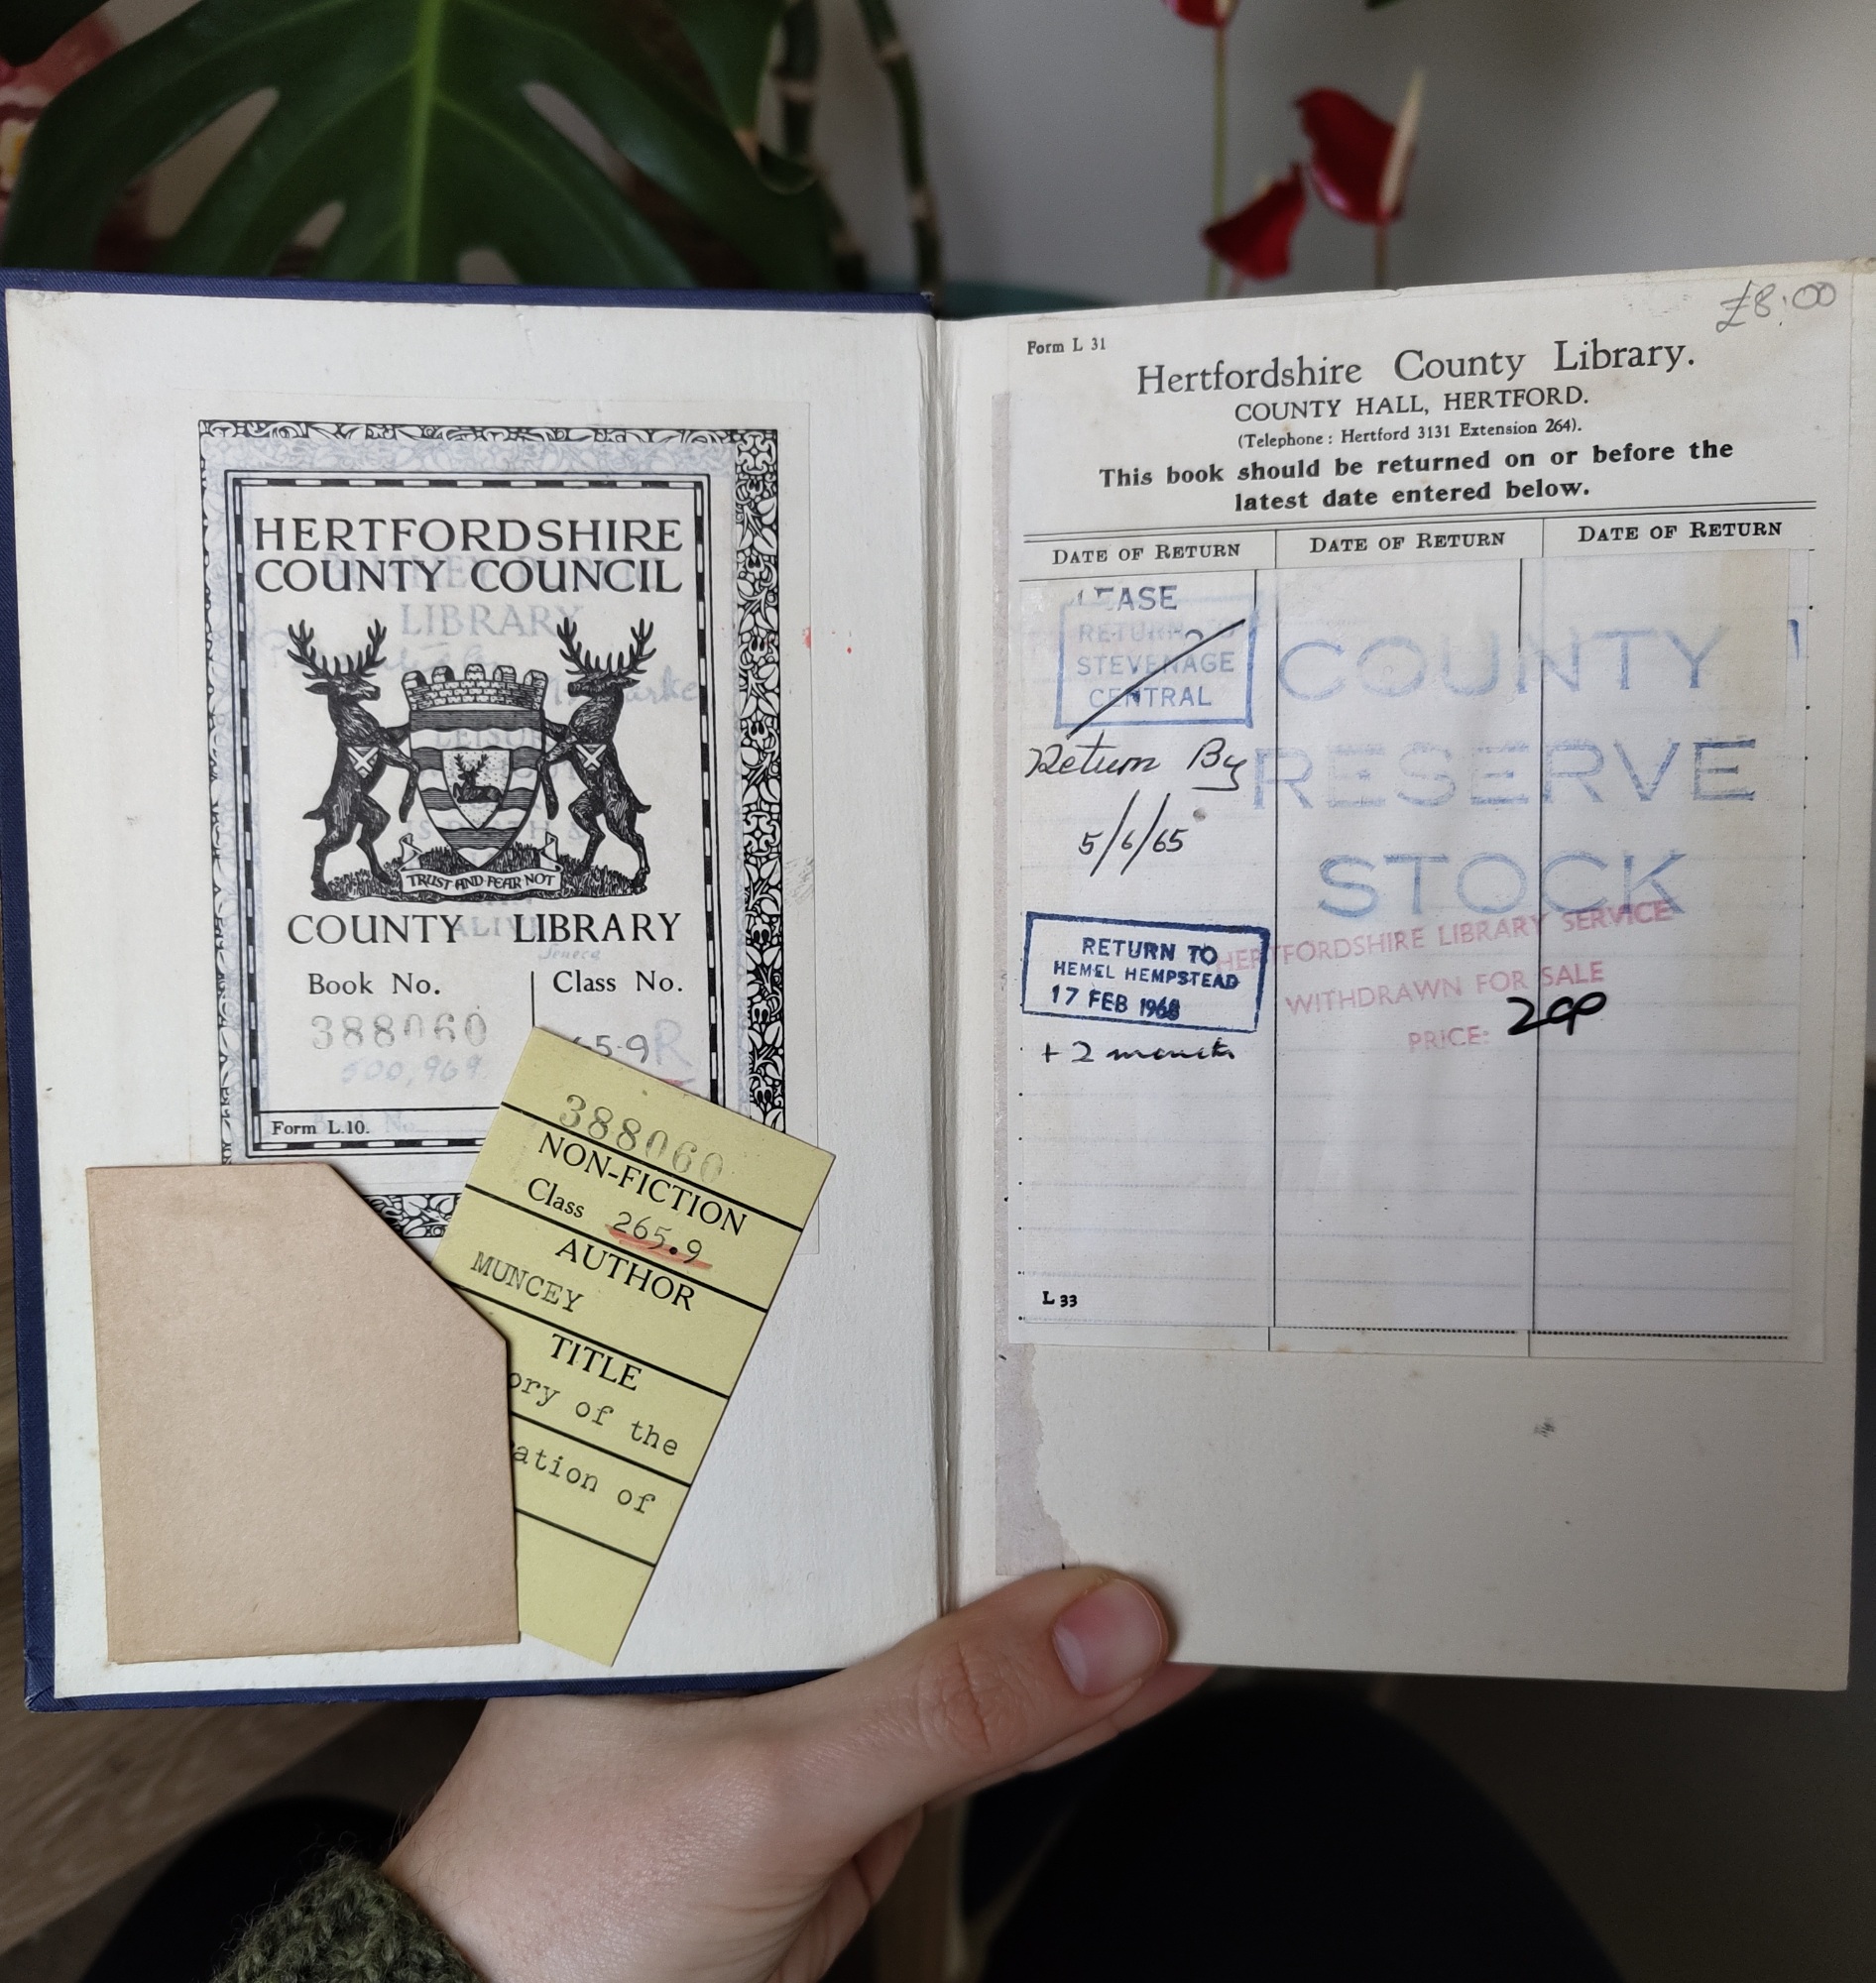 HERTFORDSHIRE
COUNTY COUNCIL
LIBRARY
TRUST AND FEAR NOT
COUNTY LIBRARY
Book No.
Class No.
388060
500,969
65.9 R
Form L.10.
388060
NON-FICTION
Class 265.9
AUTHOR
MUNCEY
TITLE
ory of the
ation of
£8.00
Form L 31
Hertfordshire County Library.
COUNTY HALL, HERTFORD.
(Telephone: Hertford 3131 Extension 264).
This book should be returned on or before the
latest date entered below.
DATE OF RETURN
DATE OF RETURN
DATE OF RETURN
LEASE
RETURN TO
STEVENAGE
CENTRAL
Return By
5/6/65
RETURN TO
HEMEL HEMPSTEAD
17 FEB 1968
+ 2 months
COUNTY
RESERVE
STOCK
HERTFORDSHIRE LIBRARY SERVICE
WITHDRAWN FOR SALE
PRICE: 20p
L 33